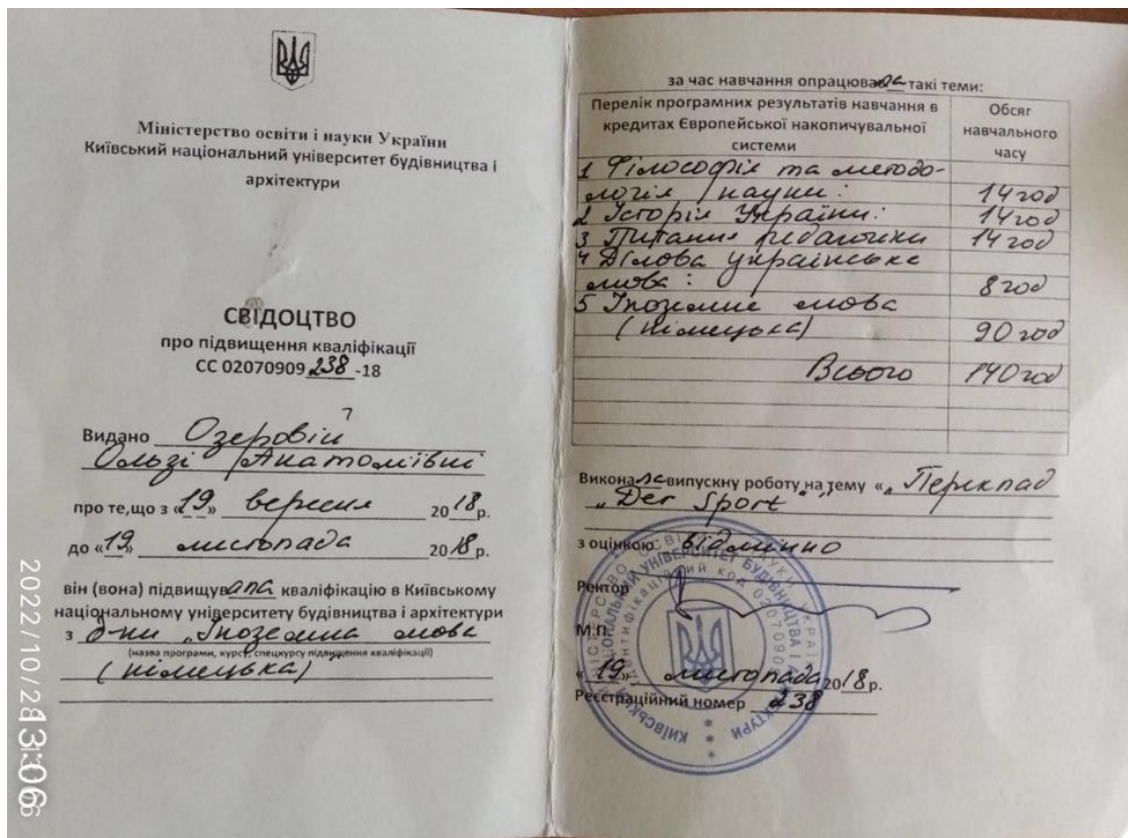 Міністерство освіти і науки України
Київський національний університет будівництва і
архітектури
СВІДОЦТВО
про підвищення кваліфікації
СС 02070909 238 -18
Видано Озеровій
Ользі Анатоліївні
про те,що з «19» вересня 2018р.
до «19» листопада 2018р.
він (вона) підвищувала кваліфікацію в Київському
національному університету будівництва і архітектури
з д-ни „Іноземна мова
(назва програми, курсу, спецкурсу підвищення кваліфікації)
(німецька)
за час навчання опрацювала такі теми:
Перелік програмних результатів навчання в
кредитах Європейської накопичувальної
системи
Обсяг
навчального
часу
1 Філософія та методо-
логія науки: 14 год
2 Історія України: 14 год
3 Питання педагогіки 14 год
4 Ділова українська
мова: 8 год
5 Іноземна мова
(німецька) 90 год
Всього 140 год
Виконала випускну роботу на тему « „Переклад
„Der Sport" »
з оцінкою відмінно
Ректор
М.П.
«19» листопада 2018р.
Реєстраційний номер 238
2022/10/28
13:06